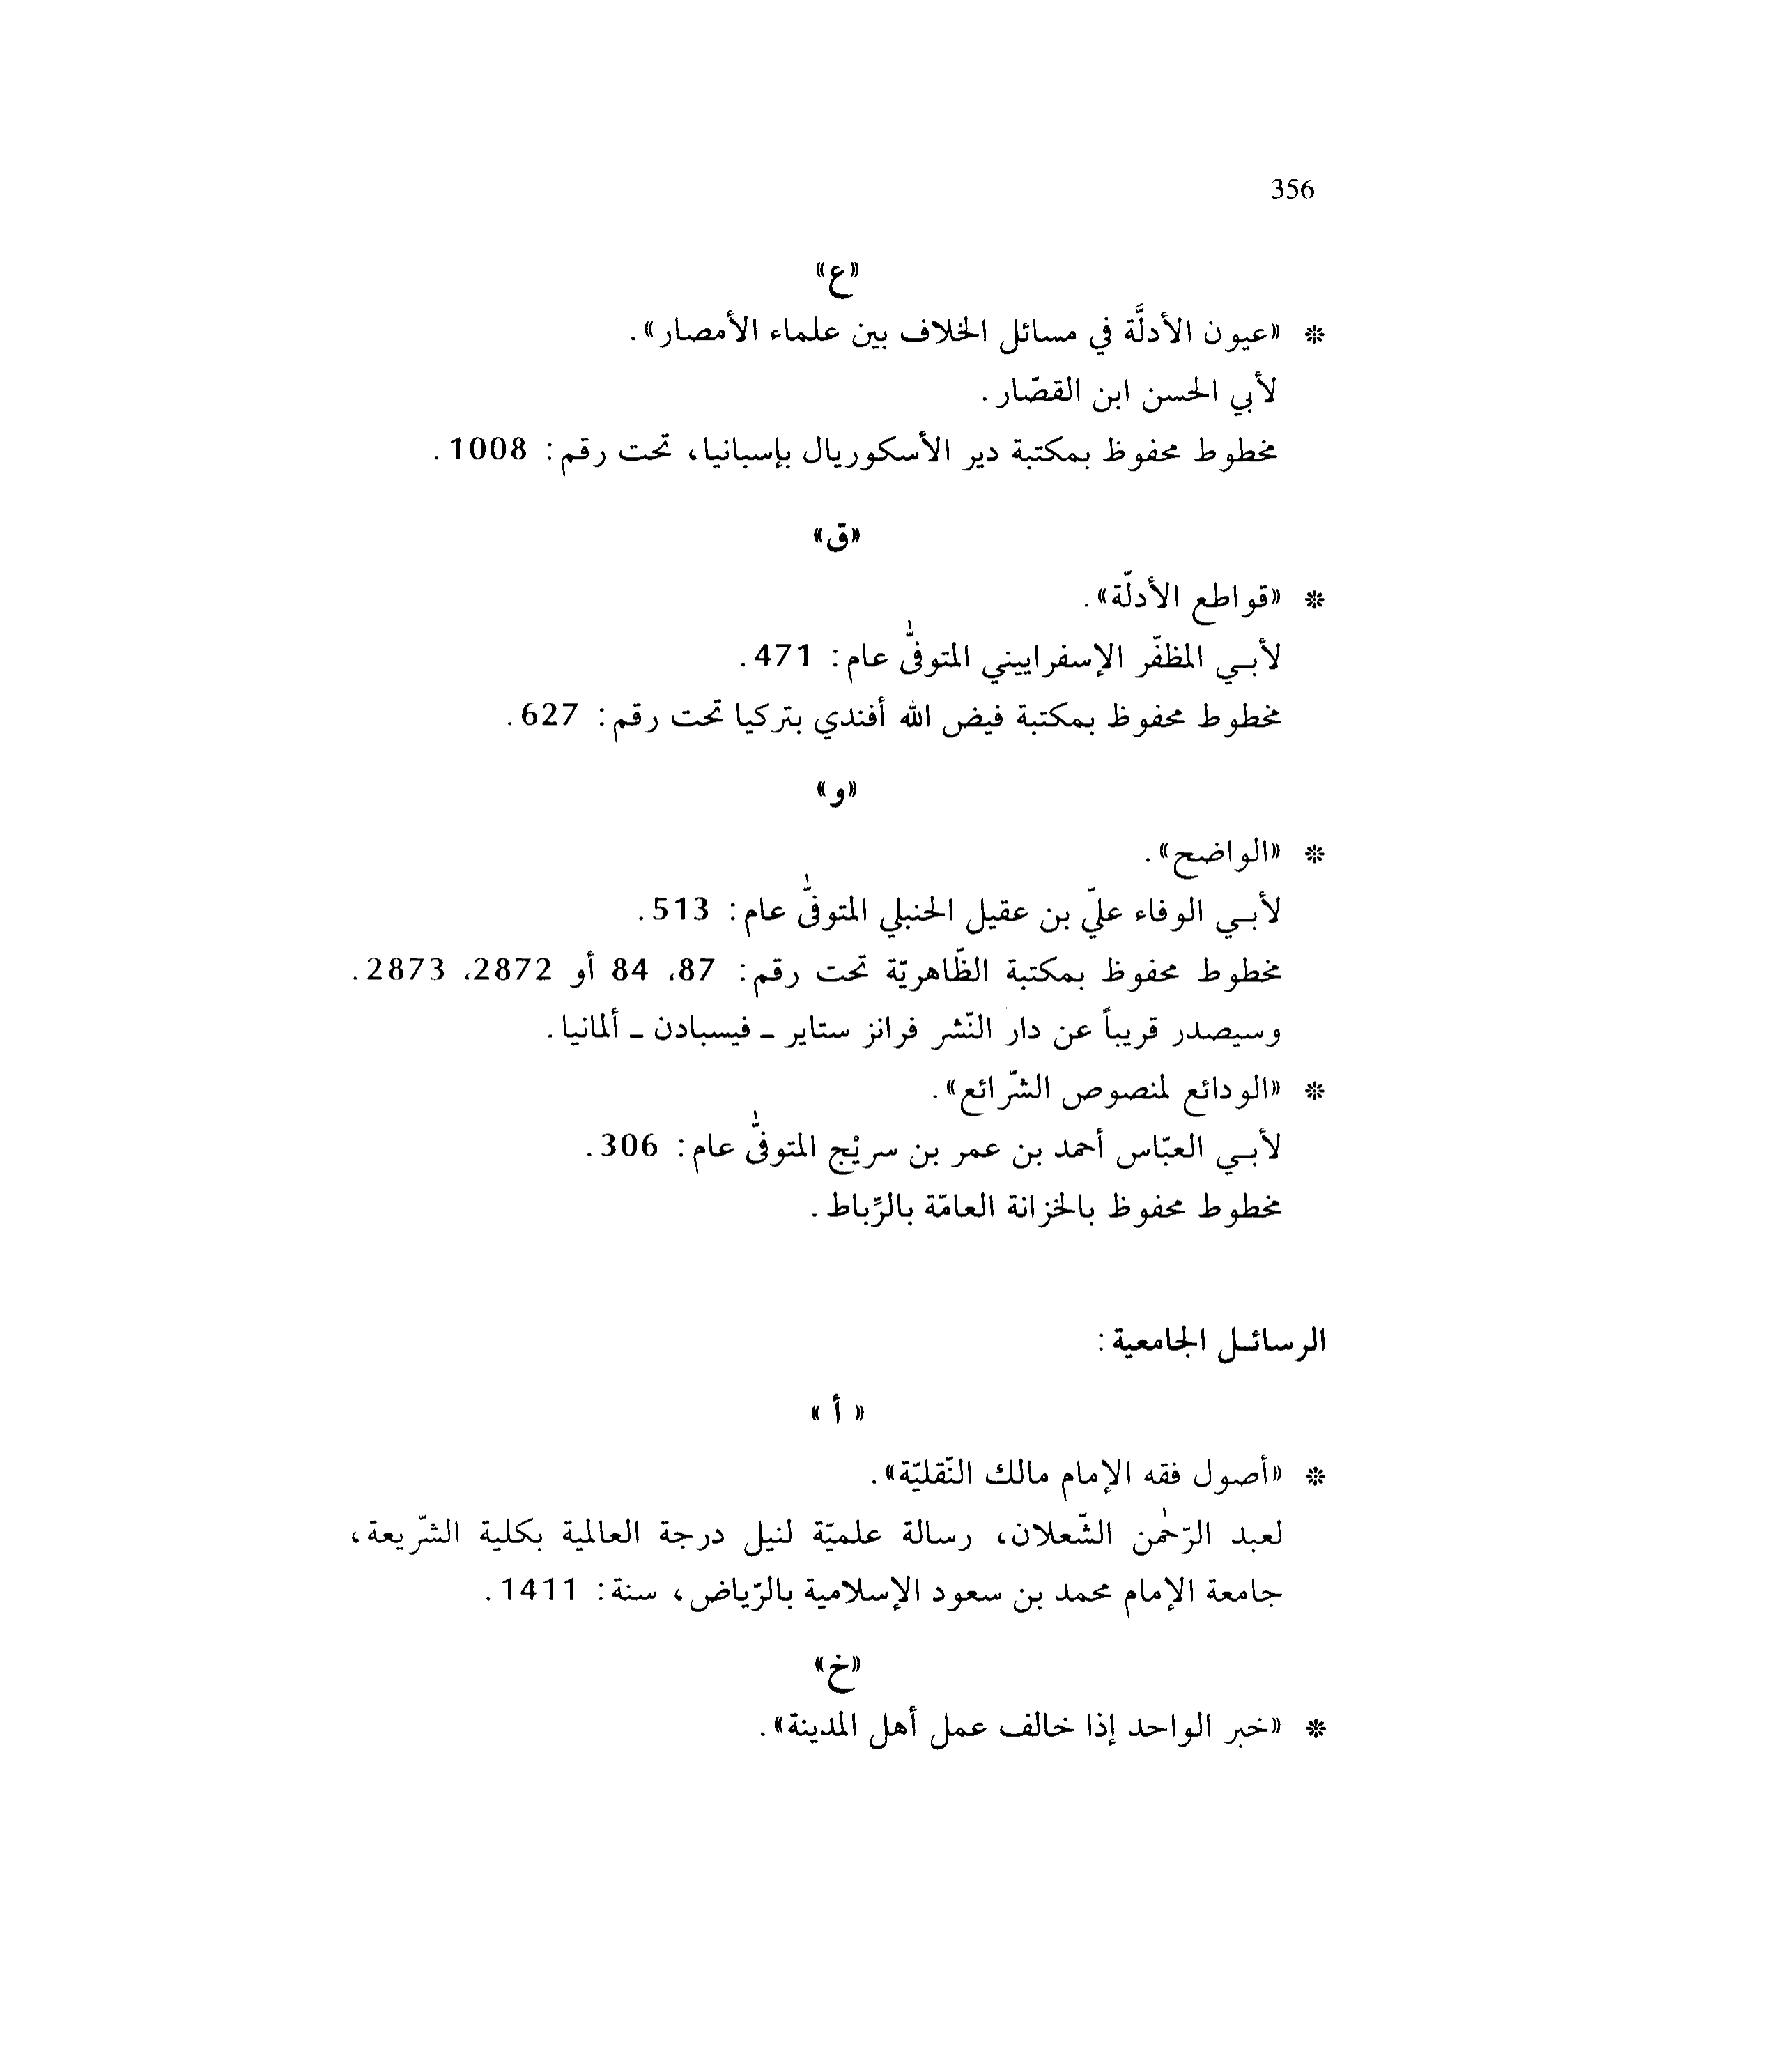 356
«ع»
* «عيون الأدلَّة في مسائل الخلاف بين علماء الأمصار».
لأبي الحسن ابن القصّار.
مخطوط محفوظ بمكتبة دير الأسكوريال بإسبانيا، تحت رقم: 1008.
«ق»
* «قواطع الأدلّة».
لأبـي المظفّر الإسفراييني المتوفّىٰ عام: 471.
مخطوط محفوظ بمكتبة فيض الله أفندي بتركيا تحت رقم: 627.
«و»
* «الواضح».
لأبـي الوفاء عليّ بن عقيل الحنبلي المتوفّىٰ عام: 513.
مخطوط محفوظ بمكتبة الظّاهريّة تحت رقم: 87، 84 أو 2872، 2873.
وسيصدر قريباً عن دار النّشر فرانز ستاير ـ فيسبادن ـ ألمانيا.
* «الودائع لمنصوص الشّرائع».
لأبـي العبّاس أحمد بن عمر بن سريْج المتوفّىٰ عام: 306.
مخطوط محفوظ بالخزانة العامّة بالرِّباط.
الرسائـل الجامعية:
« أ »
* «أصول فقه الإمام مالك النّقليّة».
لعبد الرّحمٰن الشّعلان، رسالة علميّة لنيل درجة العالمية بكلية الشّريعة،
جامعة الإمام محمد بن سعود الإسلامية بالرّياض، سنة: 1411.
«خ»
* «خبر الواحد إذا خالف عمل أهل المدينة».